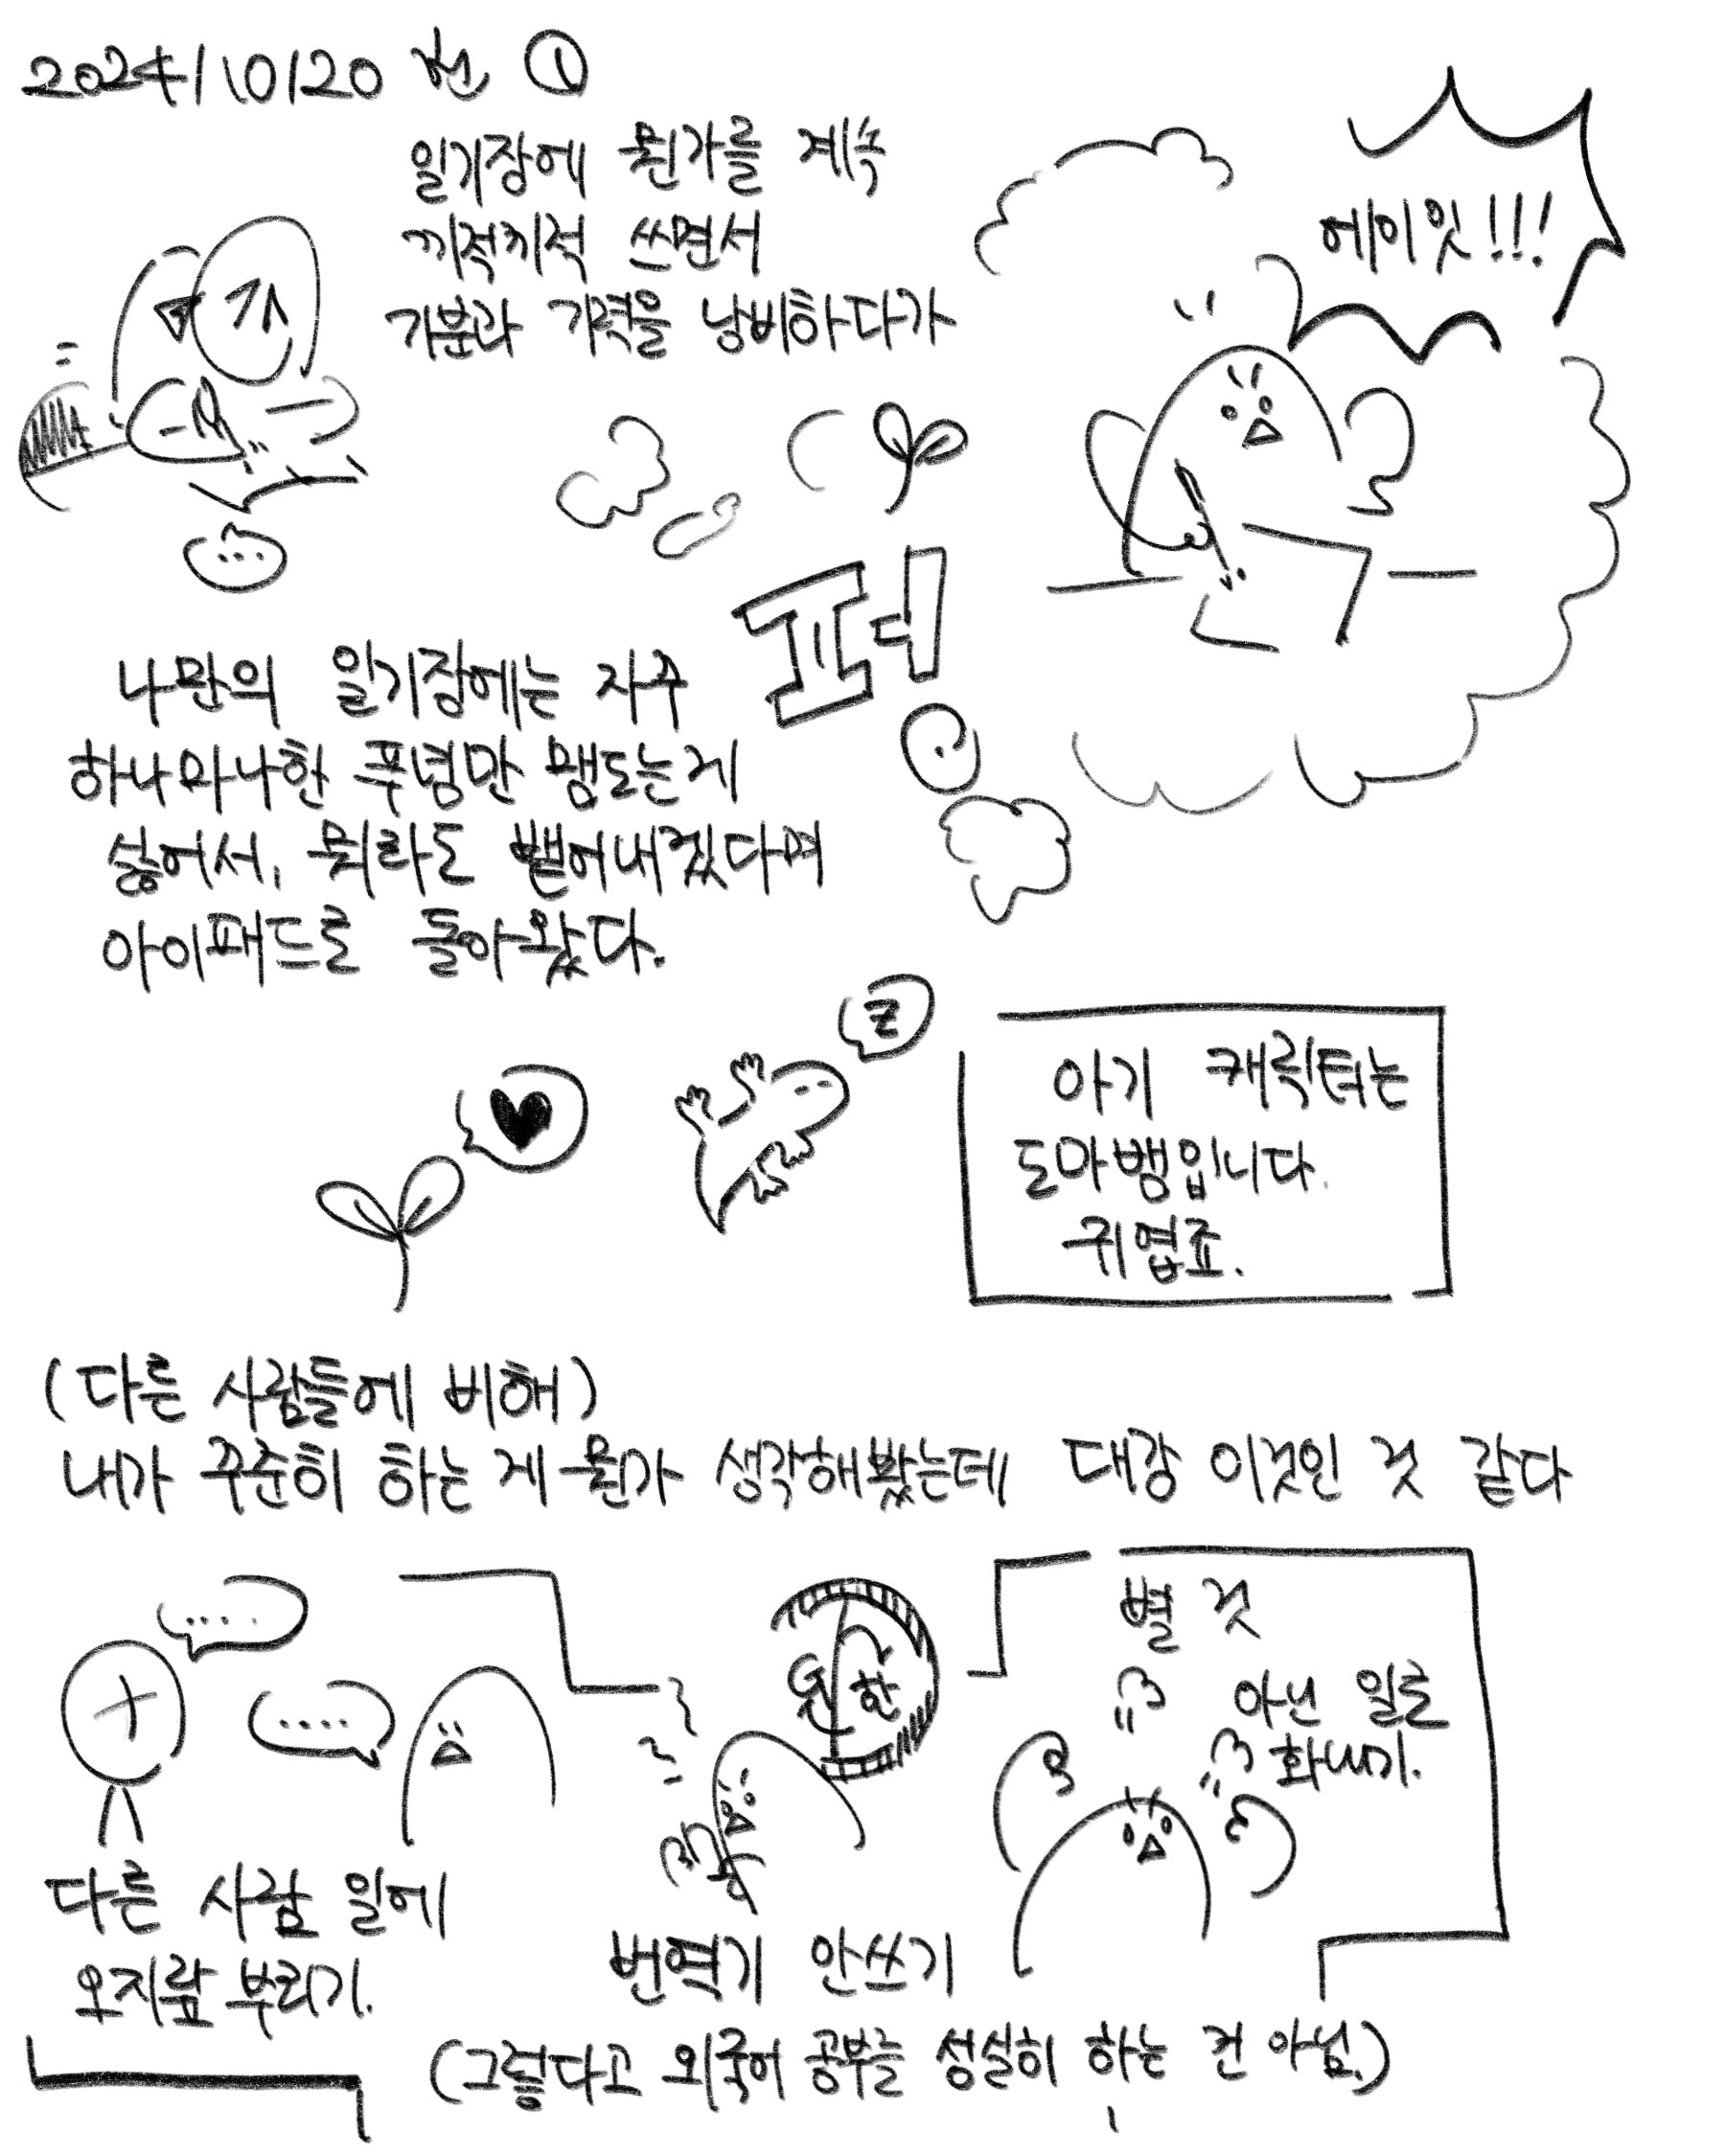 2024/10/20 전 ①
일기장에 뭔가를 계속
끼적끼적 쓰면서
기분과 기력을 낭비하다가
에이잇!!!
나만의 일기장에는 자주
하나마나한 푸념만 맴도는게
싫어서, 뭐라도 뱉어내겠다며
아이패드로 돌아왔다.
z
아기 캐릭터는
도마뱀입니다.
귀엽죠.
(다른 사람들에 비해)
내가 꾸준히 하는 게 뭔가 생각해봤는데 대강 이것인 것 같다
....
....
다른 사람 일에
오지랖 부리기.
번역기 안쓰기
(그렇다고 외국어 공부를 성실히 하는 건 아님.)
별 것
아닌 일로
화내기.